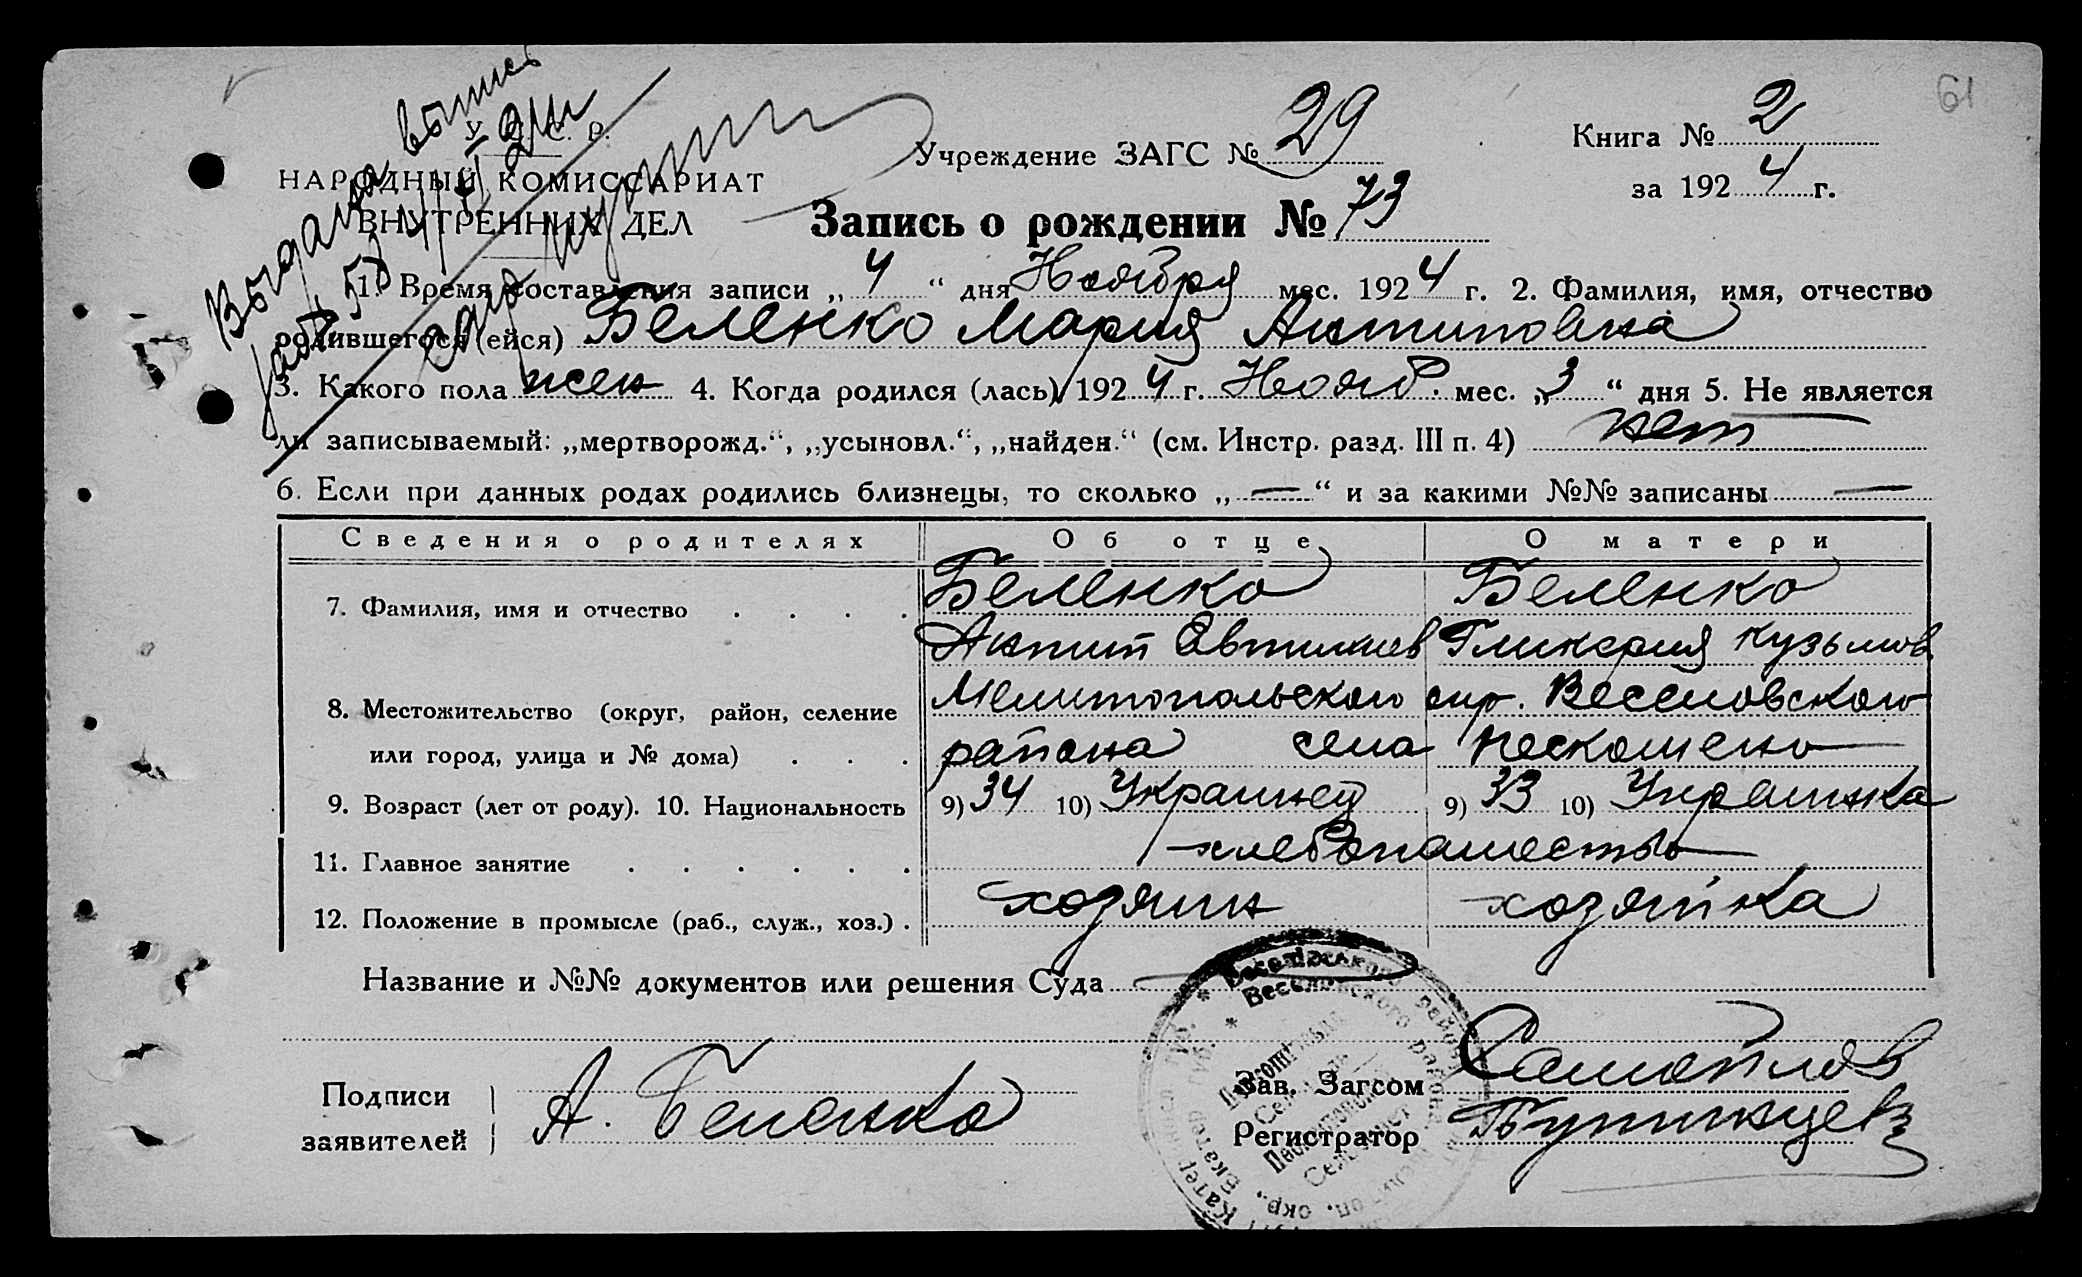 61
Выдана выпись
У. С. С. Р.
НАРОДНЫЙ КОМИССАРИАТ
ВНУТРЕННИХ ДЕЛ
Учреждение ЗАГС № 29
Книга № 2
за 1924 г.
Запись о рождении № 73
1. Время составления записи „4“ дня Ноября мес. 1924 г. 2. Фамилия, имя, отчество
родившегося (ейся) Беленко Мария Антиповна
3. Какого пола жен 4. Когда родился (лась) 1924 г. Нояб. мес. „3“ дня 5. Не является
ли записываемый: „мертворожд.“, „усыновл.“, „найден.“ (см. Инстр. разд. III п. 4) нет
6. Если при данных родах родились близнецы, то сколько „—“ и за какими №№ записаны —
Сведения о родителях Об отце О матери
7. Фамилия, имя и отчество . . . . Беленко Беленко
Антип Евтихиев Гликерия Кузьмов
8. Местожительство (округ, район, селение Мелитопольского окр. Веселовского
или город, улица и № дома) . . . района села Пескошено
9. Возраст (лет от роду). 10. Национальность 9) 34 10) Украинец 9) 33 10) Украинка
11. Главное занятие . . . . . . хлебопашество
12. Положение в промысле (раб., служ., хоз.) . хозяин хозяйка
Название и №№ документов или решения Суда —
Подписи
заявителей
А. Беленко
Зав. Загсом Самойлов
Регистратор
Веселовского района